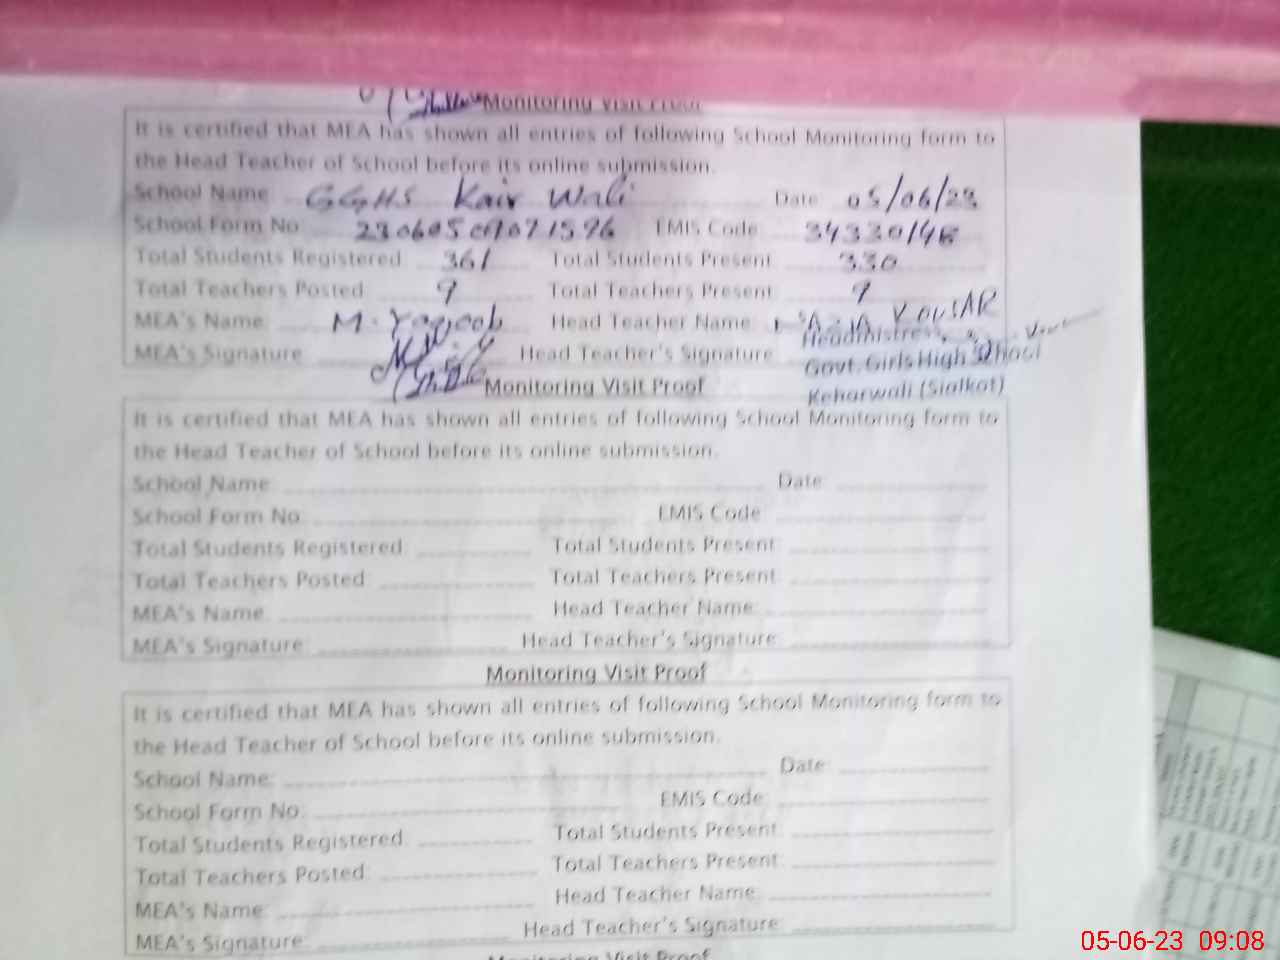 Monitoring Visit Proof
It is certified that MEA has shown all entries of following School Monitoring form to
the Head Teacher of School before its online submission.
School Name GGHS Kair Wali Date 05/06/23
School Form No. EMIS Code 34330148
Total Students Registered 361 Total Students Present 330
Total Teachers Posted 9 Total Teachers Present 9
MEA's Name: M. Yaqoob Head Teacher Name: KOUSAR
Headmistress
MEA's Signature Head Teacher's Signature
Govt. Girls High School
Keharwali (Sialkot)
Monitoring Visit Proof
It is certified that MEA has shown all entries of following School Monitoring form to
the Head Teacher of School before its online submission.
School Name: Date
School Form No. EMIS Code
Total Students Registered Total Students Present
Total Teachers Posted: Total Teachers Present
MEA's Name: Head Teacher Name:
MEA's Signature: Head Teacher's Signature:
Monitoring Visit Proof
It is certified that MEA has shown all entries of following School Monitoring form to
the Head Teacher of School before its online submission.
School Name: Date
School Form No. EMIS Code
Total Students Registered Total Students Present
Total Teachers Posted: Total Teachers Present
MEA's Name: Head Teacher Name:
MEA's Signature: Head Teacher's Signature:
Monitoring Visit Proof
05-06-23 09:08